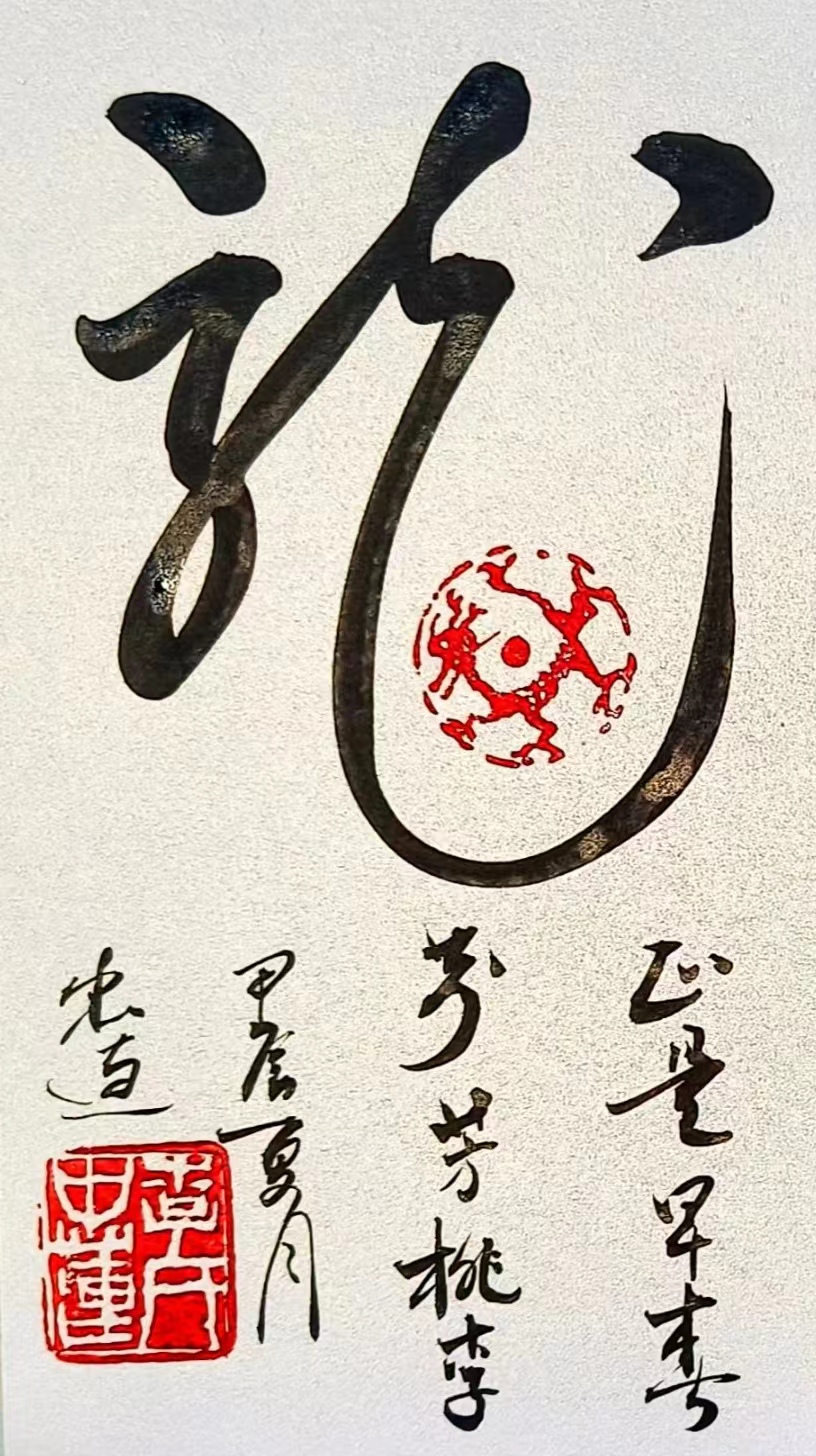 龍
正是早春
芬芳桃李
甲辰夏月